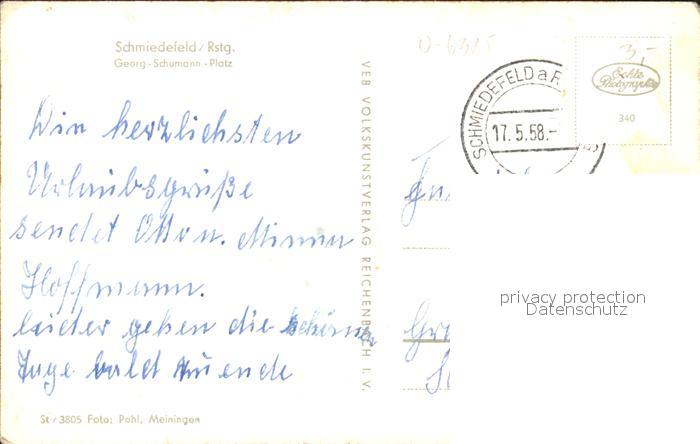 Schmiedefeld / Rstg.
Georg - Schumann - Platz
Die herzlichsten
Urlaubsgrüße
sendet Otto u. Minna
Hoffmann.
leider gehen die schönen
Tage bald zu ende
St / 3805 Foto: Pohl, Meiningen
VEB VOLKSKUNSTVERLAG REICHENBACH I. V.
O-6315
3,-
SCHMIEDEFELD a R
17.5.58.-
Echte
Photographie
340
privacy protection
Datenschutz